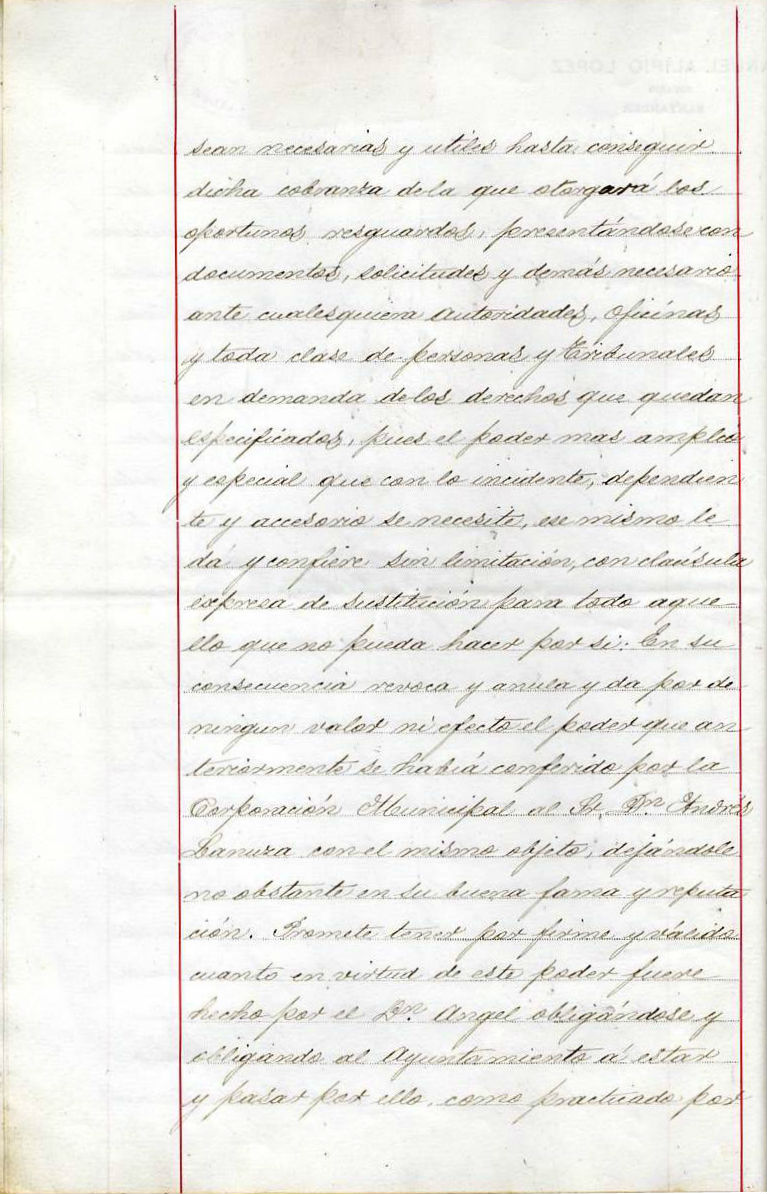 sean necesarias y utiles hasta conseguir
dicha cobranza de la que otorgará los
oportunos resguardos, presentándose con
documentos, solicitudes y demás necesario
ante cualesquiera autoridades, oficinas
y toda clase de personas y Tribunales
en demanda de los derechos que quedan
especificados, pues el poder mas amplio
y especial que con lo incidente, dependien
te y accesorio se necesite, ese mismo le
dá y confiere sin limitación, con claúsula
expresa de sustitución para todo aque
llo que no pueda hacer por si: En su
consecuencia revoca y anula y da por de
ningun valor ni efecto el poder que an
teriormente se habiá conferido por la
Corporación Municipal al Sr. Dn. Andrés
Lanuza con el mismo objeto, dejándole
no obstante en su buena fama y reputa
ción. Promete tener por firme y válido
cuanto en virtud de este poder fuere
hecho por el Dn. Angel obligándose y
obligando al Ayuntamiento á estar
y pasar por ello, como practicado por